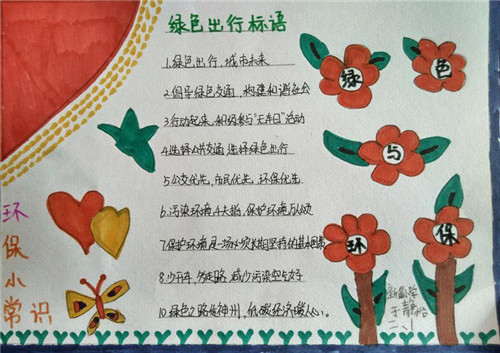 绿色出行标语
1.绿色出行,城市未来
2.倡导绿色交通,构建和谐社会
3.行动起来,积极参与"无车日"活动
4.选择公共交通 选择绿色出行
5.公交优先,市民优先,环保优先.
6.污染环境 保护环境
7.保护环境是一场必须长期坚持的
8.少开车,多走路,减少污染空气好
10.绿色之路 神州,低碳经济暖人心。
绿
色
与
环
保
环
保
小
常识
小学